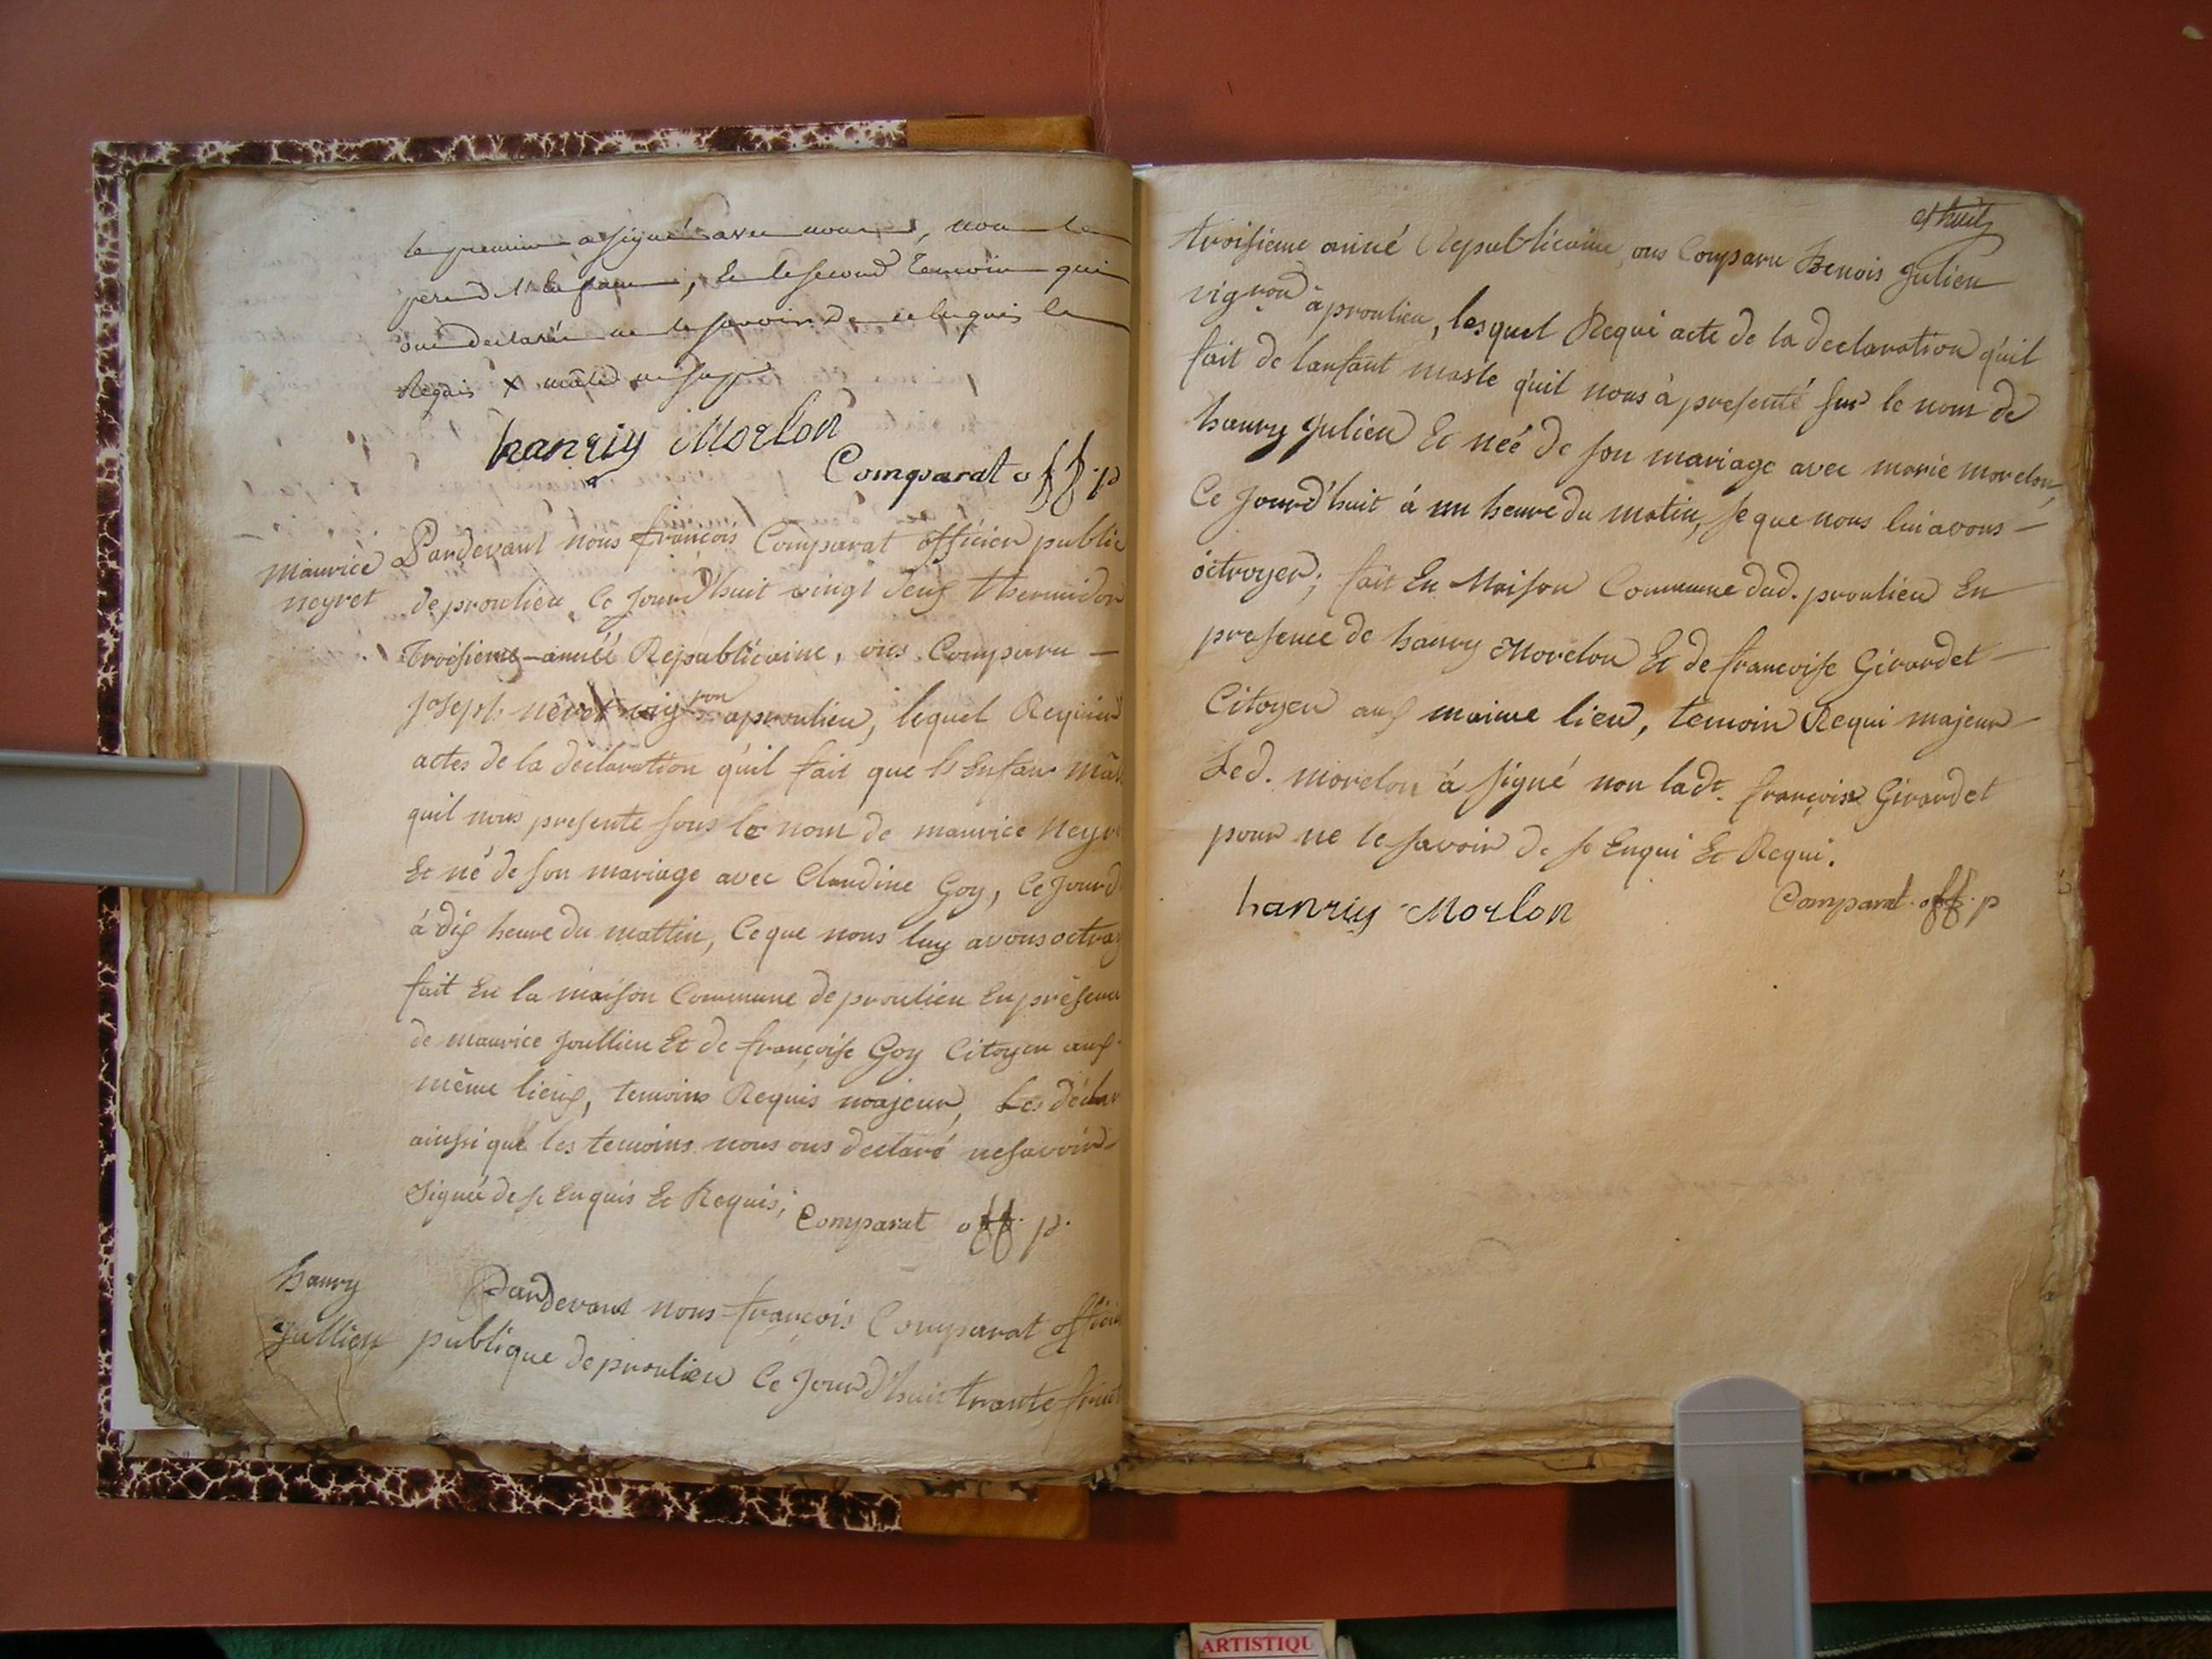 le premier a signé avec nous, non le
perend de la fame, Et le second temoin qui
ons declaré ne le savoir de ce enquis le
Requis
hanriy Morlon
Comparat off. p
maurice
neyret
Pardevant nous françois Comparat officier public
de proulieu Ce Jourd'huit vingt deux thermidor
troisieme année Republicaine, ons Comparu
Joseph vigron a proulieu, lequel Requier
actes de la déclaration q'uil fait que le Enfan mâs
quil nous presente sous le nom de maurice Neyr
Et né de son mariage avec Claudine Goy, Ce Jourd
à dix heure du mattin, Ce que nous luy avons octroy
fait En la maison Commune de proulieu En présence
de maurice Joullien Et de françoise Goy Citoyen aux
même lieux, temoins Requis majeur, Les déclar
ainssi que les temoins nous ons declaré ne savoir
Signée de se Enquis Et Requis;
Comparat off. p.
hanry
Jullien
Pardevant nous françois Comparat officie
publique de proulieu Ce Jourd'huit trante fruct
et huit
troisieme anné Republicaine, ons Comparu Benois Julien
vigron à proulieu, lesquel Requi acte de la declaration q'uil
fait de lanfant masle q'uil nous à presenté sur le nom de
hanry Julien Et neé de son mariage avec marie morelon,
Ce Jourd'huit à un heure du matin, se que nous lui avons
óctroyer; fait En Maison Commune dud. proulieu En
presence de hanry Morelon Et de francoise Girardet
Citoyen aux maime lieu, temoin Requi majeur
Led. morelon à signé non ladt. françoise Girardet
pour ne le savoir de se Enqui Et Requi.
hanriy Morlon
Comparat. off. p
ARTISTIQU